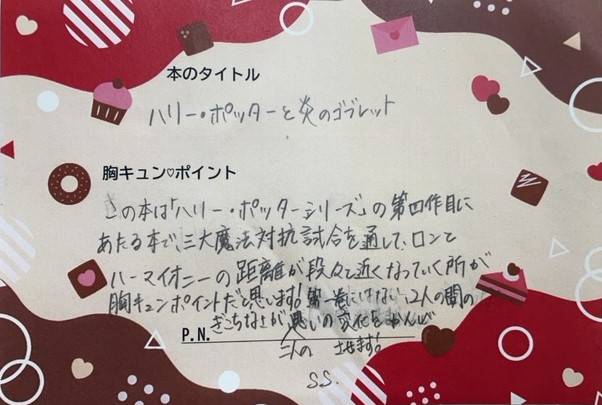 本のタイトル
ハリー・ポッターと炎のゴブレット
胸キュン♡ポイント
この本は「ハリー・ポッターシリーズ」の第四作目に
あたる本で、三大魔法対抗試合を通して、ロンと
ハーマイオニーの距離が段々と近くなっていく所が
胸キュンポイントだと思います!第一巻にはない2人の間の
ぎこちなさが 思いの変化を
P.N.
二人の させます!
S.S.